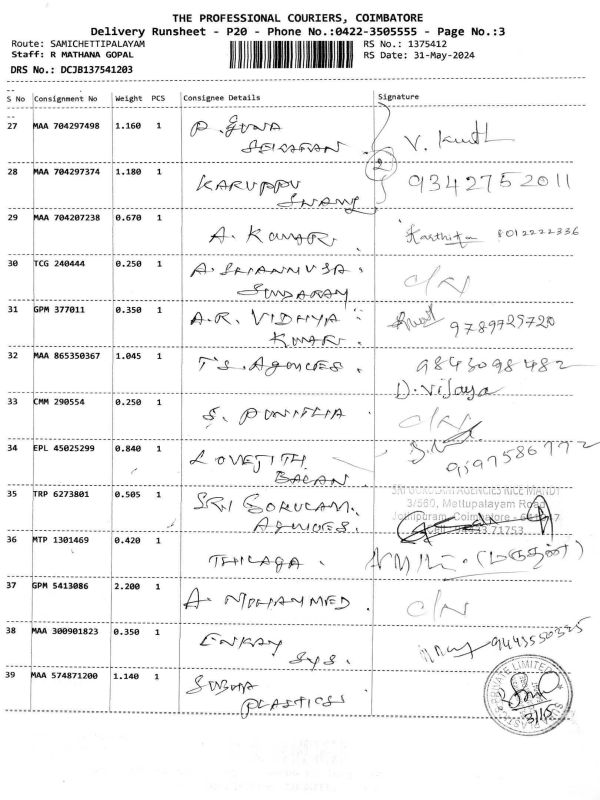 THE PROFESSIONAL COURIERS, COIMBATORE
Delivery Runsheet - P20 - Phone No.:0422-3505555 - Page No.:3
Route: SAMICHETTIPALAYAM RS No.: 1375412
Staff: R MATHANA GOPAL RS Date: 31-May-2024
DRS No.: DCJB137541203
S No Consignment No Weight PCS Consignee Details Signature
27 MAA 704297498 1.160 1 P. GUNA
SEKARAN
28 MAA 704297374 1.180 1 KARUPPU 2 9342752011
SWAMY
29 MAA 704207238 0.670 1 A. KUMAR. Karthika 8012222336
30 TCG 240444 0.250 1 A. C/N
SUNDARAM
31 GPM 377011 0.350 1 A.R. VIDHYA 9789725720
KUMAR.
32 MAA 865350367 1.045 1 T.S. AGENCIES. 9843098482
D. Vijaya
33 CMM 290554 0.250 1 S. PUNITHA C/N
34 EPL 45025299 0.840 1 LOVEJITH 9597586772
BALAN
35 TRP 6273801 0.505 1 SRI GOKULAM. SRI GOKULAM AGENCIES RICE MANDY
AGENCIES. 3/560, Mettupalayam Road
Jothipuram, Coimbatore
36 MTP 1301469 0.420 1 THILAGA. (மருதன்)
37 GPM 5413086 2.200 1 A. MOHAMMED. C/N
38 MAA 300901823 0.350 1 ENKAY 9443550325
SYS.
39 MAA 574871200 1.140 1 SUGUNA PRIVATE LIMITED
PLASTICS 31/5